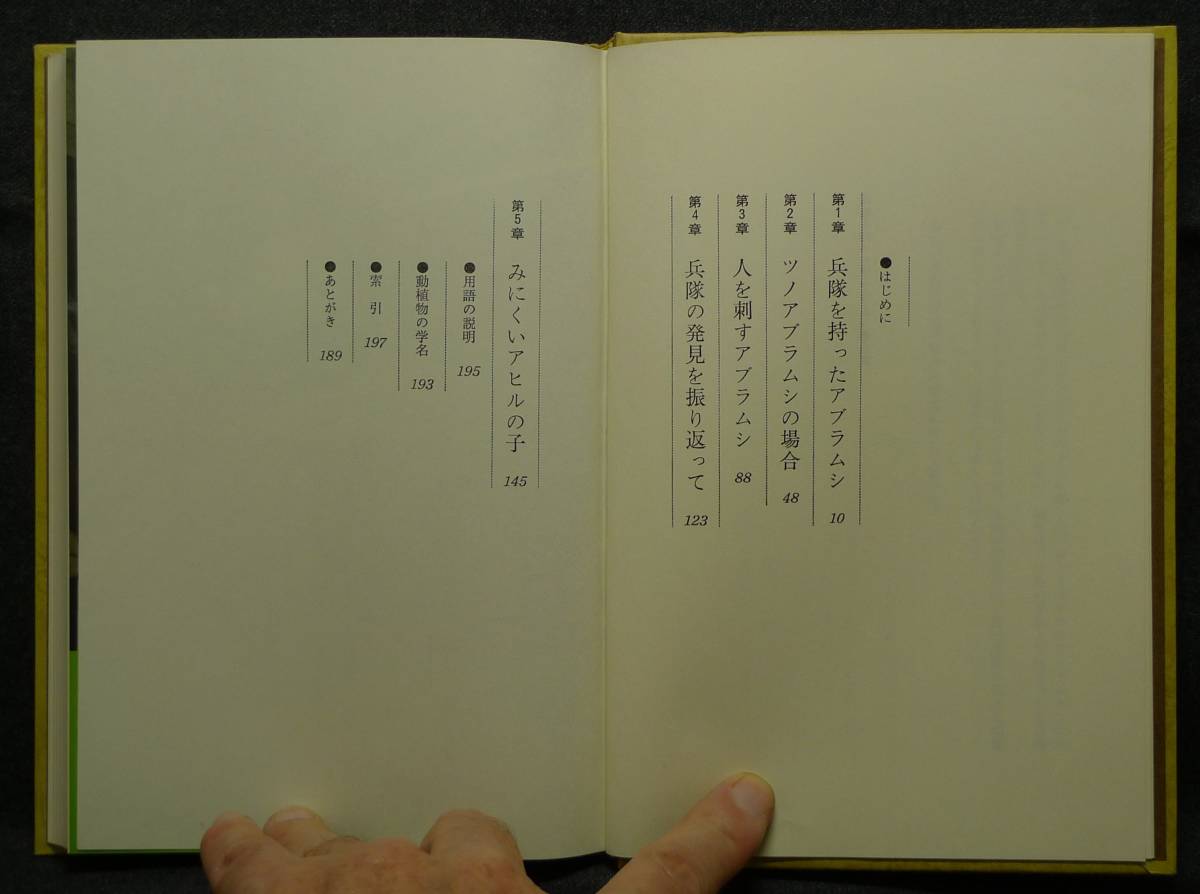 ●はじめに
第1章 兵隊を持ったアブラムシ 10
第2章 ツノアブラムシの場合 48
第3章 人を刺すアブラムシ 88
第4章 兵隊の発見を振り返って 123
第5章 みにくいアヒルの子 145
●用語の説明 195
●動植物の学名 193
●索引 197
●あとがき 189